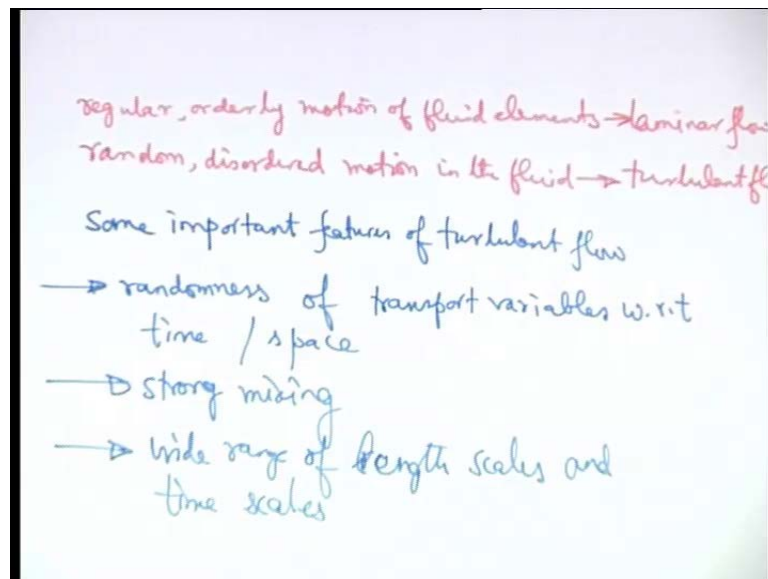 regular, orderly motion of fluid elements → laminar flow
random, disordered motion in the fluid → turbulent fl
Some important features of turbulent flow
→ randomness of transport variables w.r.t
time / space
→ strong mixing
→ wide range of length scales and
time scales